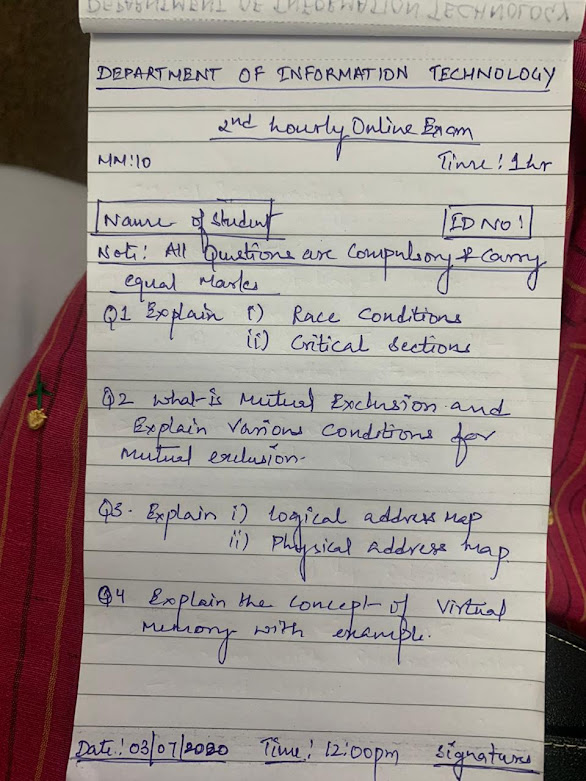 DEPARTMENT OF INFORMATION TECHNOLOGY
DEPARTMENT OF INFORMATION TECHNOLOGY
2nd hourly Online Exam
MM:10 Time: 1hr
Name of Student ID NO:
Note: All Questions are Compulsory & Carry
equal Marks
Q1 Explain i) Race Conditions
ii) Critical Sections
Q2 What is Mutual Exclusion and
Explain Various Conditions for
Mutual exclusion.
Q3. Explain i) Logical address Map
ii) Physical address map.
Q4 Explain the Concept of Virtual
Memory with example.
Date: 03/07/2020 Time: 12:00pm Signature